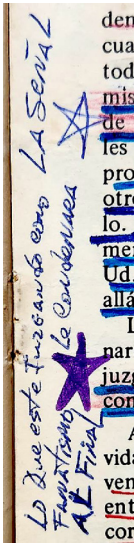 Lo Que este Juzgando como LA SEÑAL
Fanatismo Le Condenara
AL Final
den
cua
tod
mis
de
les
pro
otre
lo.
mer
Ud.
allá
nar
juzg
con
vida
ven
ent
con